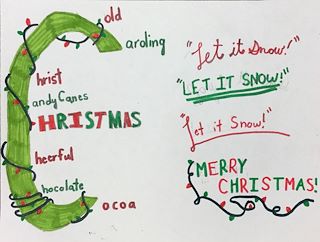 old
aroling
hrist
andy Canes
HRISTMAS
heerful
hocolate
ocoa
"Let it Snow!"
"LET IT SNOW!"
"Let it Snow!"
MERRY
CHRISTMAS!